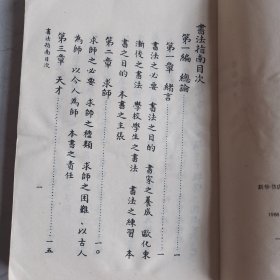 書法指南目次
第一編 總論
第一章 緒言
書法之必要 書法之目的 書家之養成 歐化東
漸後之書法 學校學生之書法 書法之練習 本
書之目的 本書之主張
第二章 求師
求師之必要 求師之種類 求師之困難 以古人
為師 以今人為師 本書之責任
第三章 天才
書法指南目次
一
一
一
一〇
一五
新华书店